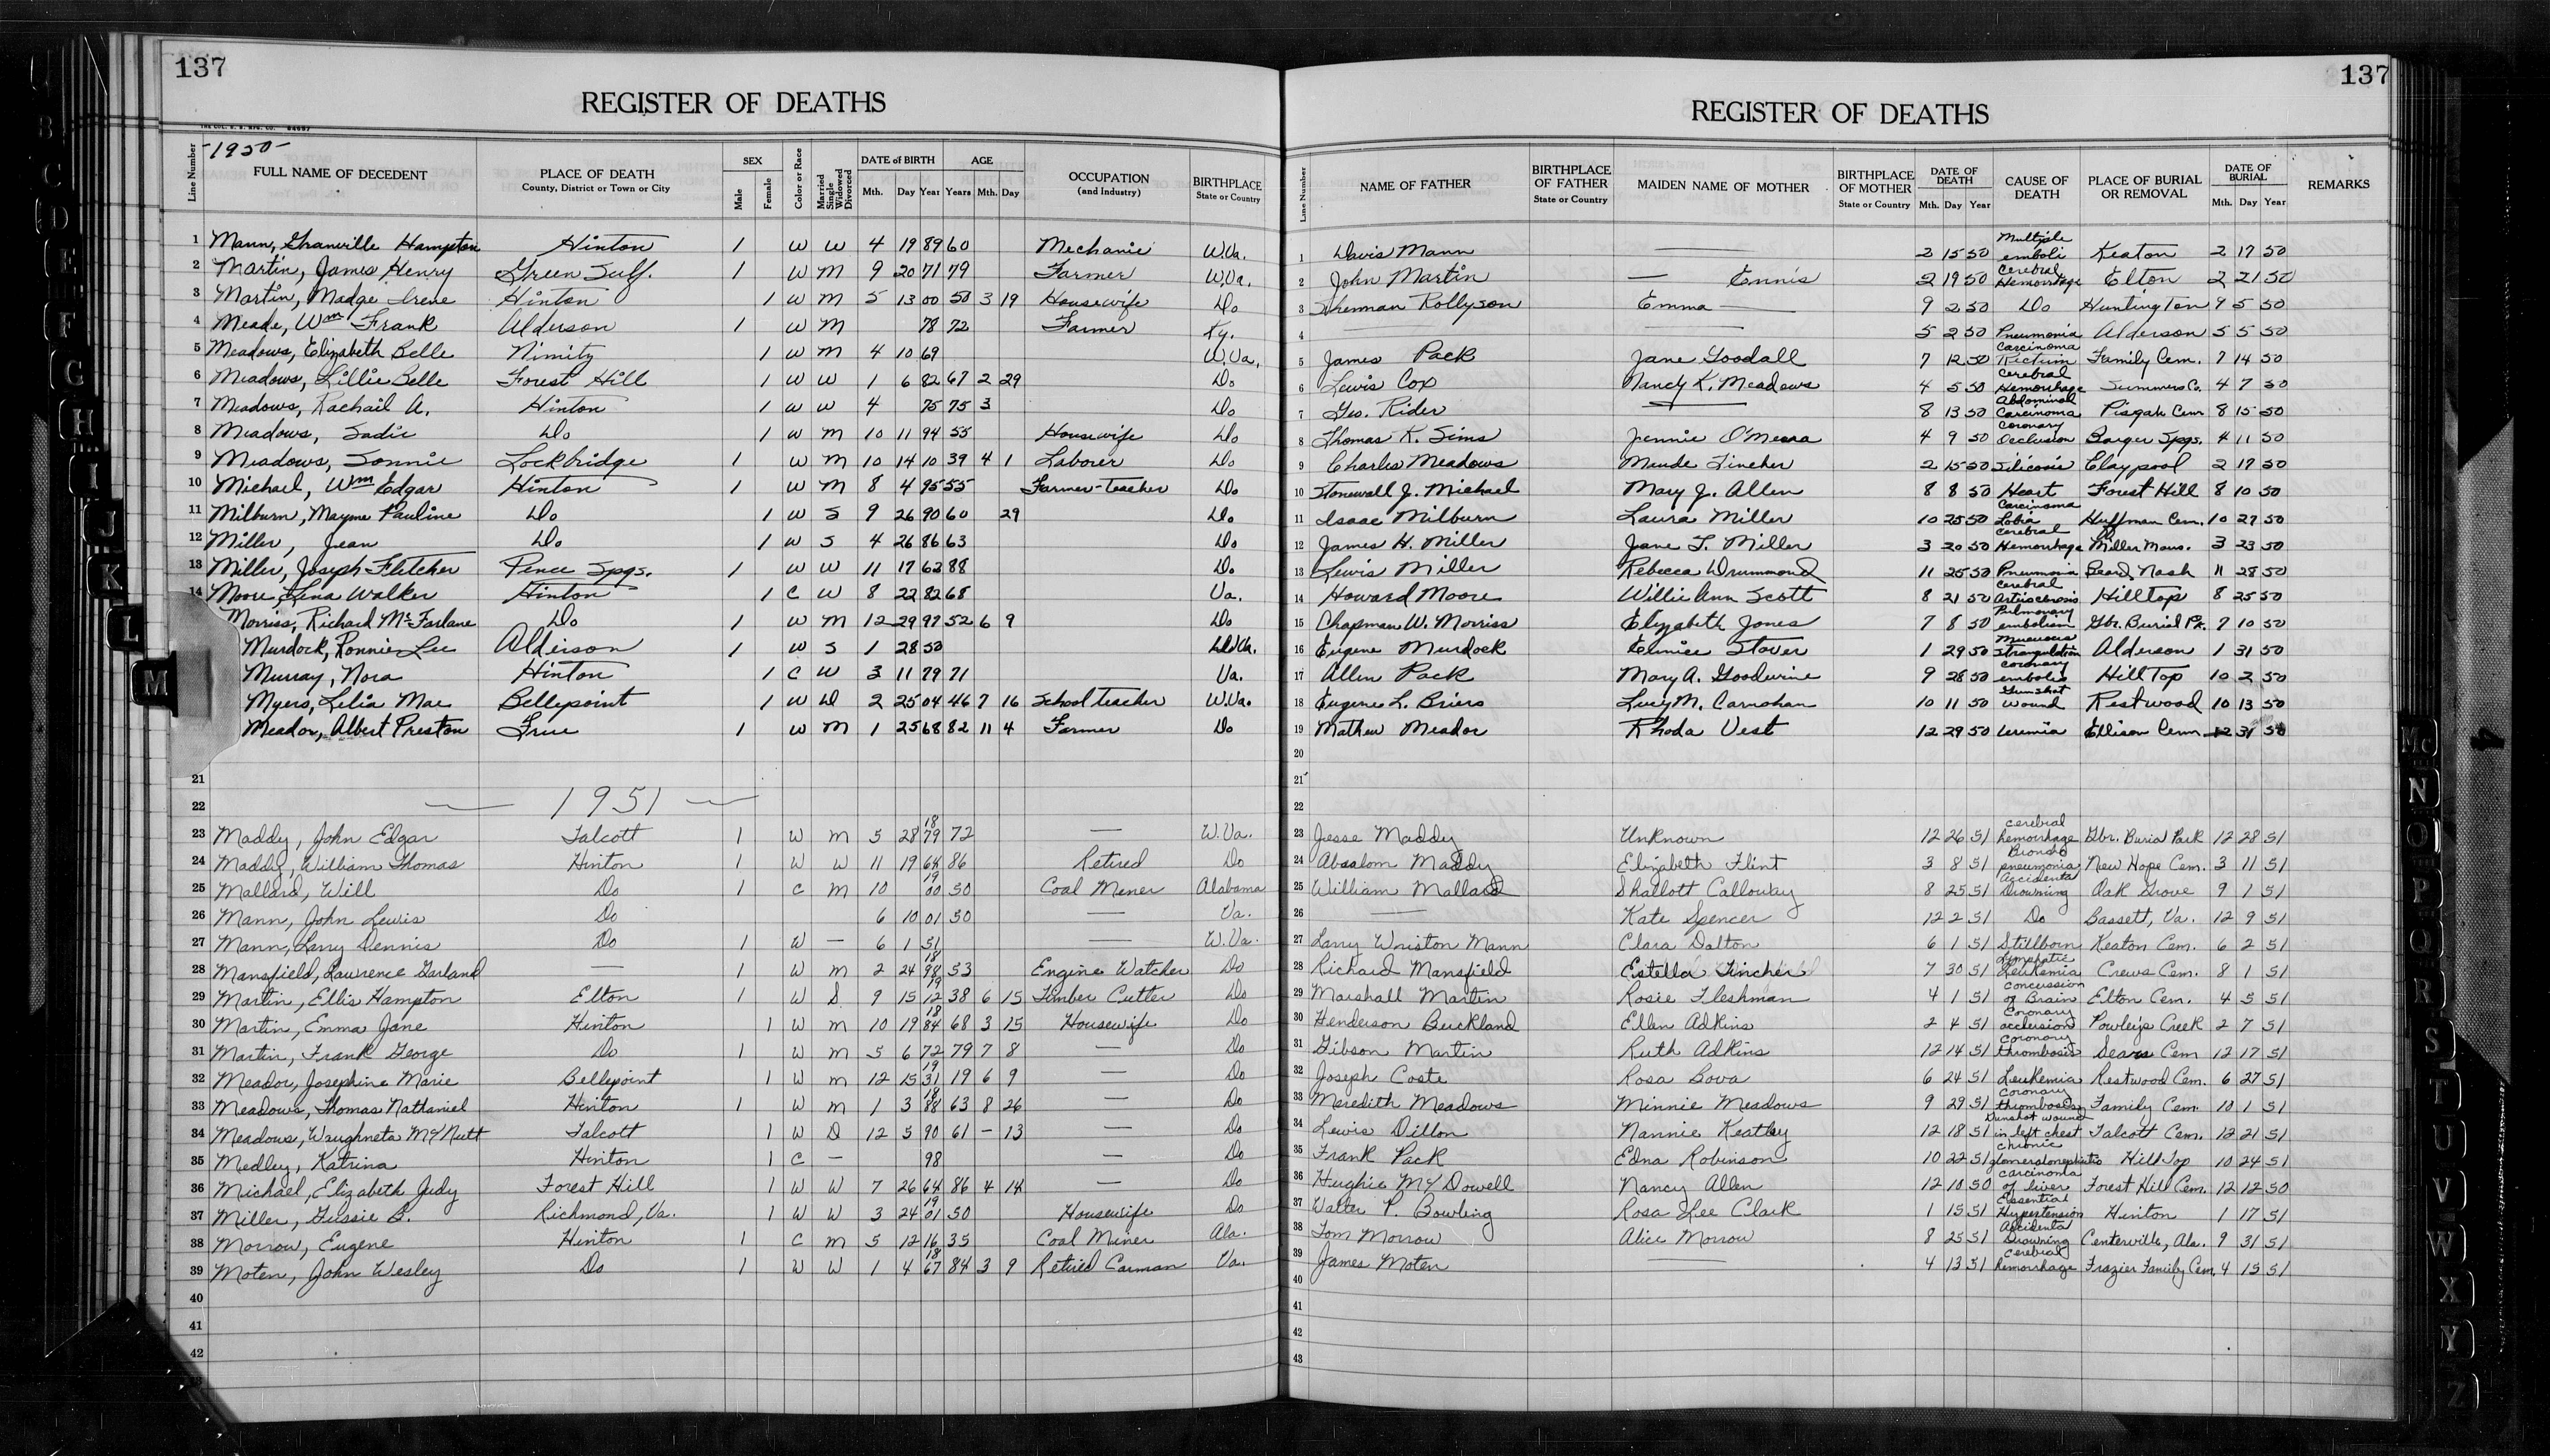 137
REGISTER OF DEATHS
-1950-
Line Number FULL NAME OF DECEDENT PLACE OF DEATH County, District or Town or City SEX Male Female Color or Race Married Single Widowed Divorced DATE of BIRTH Mth. Day Year AGE Years Mth. Day OCCUPATION (and Industry) BIRTHPLACE State or Country
1 Mann, Granville Hampton Hinton 1 W W 4 19 89 60 Mechanic W.Va.
2 Martin, James Henry Green Sulf. 1 W M 9 20 71 79 Farmer W.Va.
3 Martin, Madge Irene Hinton 1 W M 5 13 00 50 3 19 Housewife Do
4 Meade, Wm Frank Alderson 1 W M 78 72 Farmer Ky.
5 Meadows, Elizabeth Belle Nimitz 1 W M 4 10 69 W.Va.
6 Meadows, Lillie Belle Forest Hill 1 W W 1 6 82 67 2 29 Do
7 Meadows, Rachail A. Hinton 1 W W 4 75 75 3 Do
8 Meadows, Sadie Do 1 W M 10 11 94 55 Housewife Do
9 Meadows, Sonnie Lockbridge 1 W M 10 14 10 39 4 1 Laborer Do
10 Michael, Wm Edgar Hinton 1 W M 8 4 95 55 Farmer-teacher Do
11 Milburn, Mayme Pauline Do 1 W S 9 26 90 60 29 Do
12 Miller, Jean Do 1 W S 4 26 86 63 Do
13 Miller, Joseph Fletcher Pence Spgs. 1 W W 11 17 62 88 Do
14 Moore, Lina Walker Hinton 1 C W 8 22 82 68 Va.
Morriss, Richard McFarlane Do 1 W M 12 29 97 52 6 9 Do
Murdock, Ronnie Lee Alderson 1 W S 1 28 50 W.Va.
Murray, Nora Hinton 1 C W 3 11 79 71 Va.
Myers, Lelia Mae Bellepoint 1 W D 2 25 04 46 7 16 School teacher W.Va.
Meador, Albert Preston True 1 W M 1 25 68 82 11 4 Farmer Do
21
22 — 1951 —
23 Maddy, John Edgar Talcott 1 W M 5 28 1879 72 — W.Va.
24 Maddy, William Thomas Hinton 1 W W 11 19 64 86 Retired Do
25 Mallard, Will Do 1 C M 10 1900 50 Coal Miner Alabama
26 Mann, John Lewis Do 6 10 01 50 — Va.
27 Mann, Larry Dennis Do 1 W — 6 1 51 — W.Va.
28 Mansfield, Lawrence Garland — 1 W M 2 24 1898 53 Engine Watcher Do
29 Martin, Ellis Hampton Elton 1 W S 9 15 1912 38 6 15 Timber Cutter Do
30 Martin, Emma Jane Hinton 1 W M 10 19 1884 68 3 15 Housewife Do
31 Martin, Frank George Do 1 W M 5 6 72 79 7 8 — Do
32 Meador, Josephine Marie Bellepoint 1 W M 12 15 1931 19 6 9 — Do
33 Meadows, Thomas Nathaniel Hinton 1 W M 1 3 1888 63 8 26 — Do
34 Meadows, Waughneta McNutt Talcott 1 W D 12 5 90 61 — 13 — Do
35 Medley, Katrina Hinton 1 C — 98 — Do
36 Michael, Elizabeth Judy Forest Hill 1 W W 7 26 64 86 4 14 — Do
37 Miller, Gussie B. Richmond, Va. 1 W W 3 24 1901 50 Housewife Do
38 Morrow, Eugene Hinton 1 C M 5 12 16 35 Coal Miner Ala.
39 Moten, John Wesley Do 1 W W 1 4 1867 84 3 9 Retired Carman Va.
40
41
42
137
REGISTER OF DEATHS
Line Number NAME OF FATHER BIRTHPLACE OF FATHER State or Country MAIDEN NAME OF MOTHER BIRTHPLACE OF MOTHER State or Country DATE OF DEATH Mth. Day Year CAUSE OF DEATH PLACE OF BURIAL OR REMOVAL DATE OF BURIAL Mth. Day Year REMARKS
1 Davis Mann — 2 15 50 Multiple emboli Keaton 2 17 50
2 John Martin — Ennis 2 19 50 Cerebral Hemorrhage Elton 2 21 50
3 Sherman Rollyson Emma — 9 2 50 Do Huntington 9 5 50
4 — — 5 2 50 Pneumonia Alderson 5 5 50
5 James Pack Jane Goodall 7 12 50 Carcinoma Rectum Family Cem. 7 14 50
6 Lewis Cox Nancy K. Meadows 4 5 50 Cerebral Hemorrhage Summers Co. 4 7 50
7 Geo. Rider — 8 13 50 Abdominal Carcinoma Pisgah Cem 8 15 50
8 Thomas K. Sims Jennie O'Meara 4 9 50 Coronary Occlusion Barger Spgs. 4 11 50
9 Charles Meadows Maude Fincher 2 15 50 Silicosis Claypool 2 17 50
10 Stonewall J. Michael Mary J. Allen 8 8 50 Heart Forest Hill 8 10 50
11 Isaac Milburn Laura Miller 10 25 50 Carcinoma Labia Huffman Cem. 10 27 50
12 James H. Miller Jane T. Miller 3 20 50 Cerebral Hemorrhage Miller Maus. 3 23 50
13 Lewis Miller Rebecca Drummond 11 25 50 Pneumonia Beard Nash 11 28 50
14 Howard Moore Willie Ann Scott 8 21 50 Cerebral Hilltop 8 25 50
15 Chapman W. Morriss Elizabeth Jones 7 8 50 Pulmonary embolism Gbr. Burial Pk. 7 10 50
16 Eugene Murdock Eunice Stover 1 29 50 Strangulation Alderson 1 31 50
17 Allen Pack Mary A. Goodwine 9 28 50 coronary embolis Hill Top 10 2 50
18 Eugene L. Briers Lucy M. Carnahan 10 11 50 Gunshot wound Restwood 10 13 50
19 Mathew Meador Rhoda Vest 12 29 50 Uremia Ellison Cem 12 31 50
20
21
22
23 Jesse Maddy Unknown 12 26 51 cerebral hemorrhage Gbr. Burial Park 12 28 51
24 Absalom Maddy Elizabeth Flint 3 8 51 Broncho pneumonia New Hope Cem. 3 11 51
25 William Mallard Shallott Calloway 8 25 51 Accidental Drowning Oak Grove 9 1 51
26 — Kate Spencer 12 2 51 Do Bassett, Va. 12 9 51
27 Larry Wriston Mann Clara Dalton 6 1 51 Stillborn Keaton Cem. 6 2 51
28 Richard Mansfield Estella Fincher 7 30 51 Lymphatic Leukemia Crews Cem. 8 1 51
29 Marshall Martin Rosie Fleshman 4 1 51 concussion of Brain Elton Cem. 4 5 51
30 Henderson Buckland Ellen Adkins 2 4 51 Coronary occlusion Powley's Creek 2 7 51
31 Gibson Martin Ruth Adkins 12 14 51 coronary thrombosis Sears Cem 12 17 51
32 Joseph Coste Rosa Bova 6 24 51 Leukemia Restwood Cem. 6 27 51
33 Meredith Meadows Minnie Meadows 9 29 51 coronary thrombosis Family Cem. 10 1 51
34 Lewis Dillon Nannie Keatley 12 18 51 Gunshot wound in left chest Talcott Cem. 12 21 51
35 Frank Pack Edna Robinson 10 22 51 chronic glomerulonephritis Hill Top 10 24 51
36 Hughie McDowell Nancy Allen 12 10 50 carcinoma of liver Forest Hill Cem. 12 12 50
37 Walter P. Bowling Rosa Lee Clark 1 15 51 Essential Hypertension Hinton 1 17 51
38 Tom Morrow Alice Morrow 8 25 51 Accidental Drowning Centerville, Ala. 9 31 51
39 James Moten — 4 13 51 cerebral hemorrhage Frazier Family Cem. 4 15 51
40
41
42
43
B
C
D
E
F
G
H
I
J
K
L
M
Mc
N
O
P
Q
R
S
T
U
V
W
X
Y
Z
4